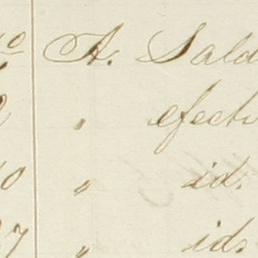 A. Sald
" efectu
10 " id.
7 " ids